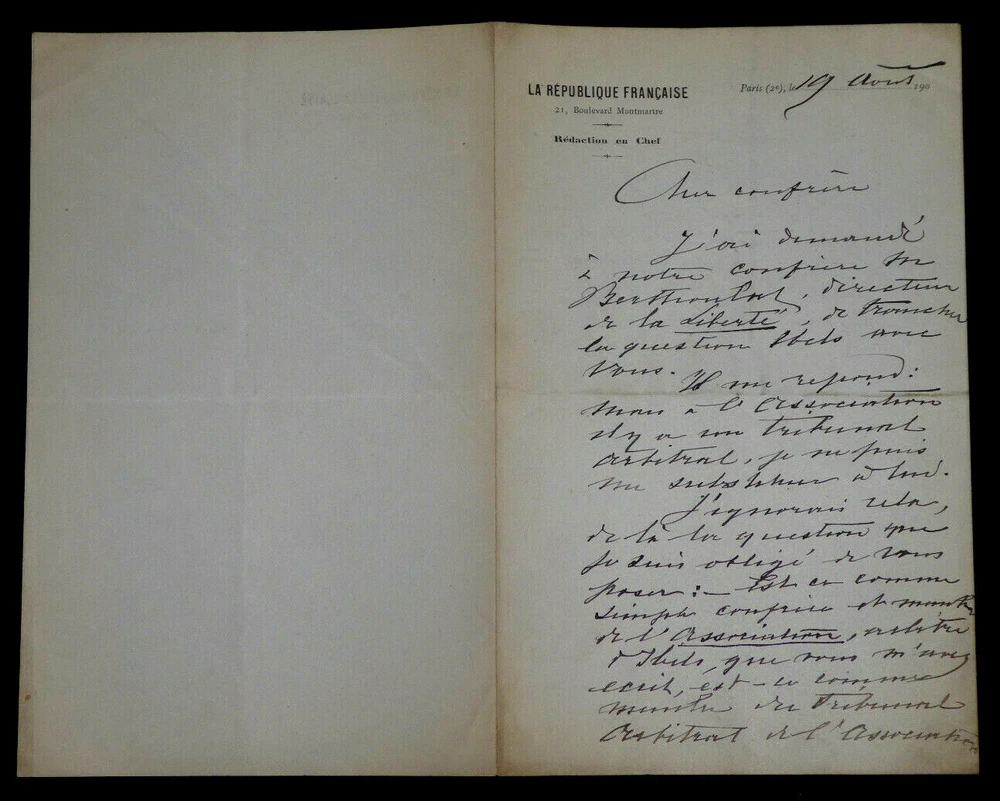 LA RÉPUBLIQUE FRANÇAISE
21, Boulevard Montmartre
Rédaction en Chef
Paris (2e), le 19 Août 190
Cher confrère
J'ai demandé
à notre confrère Mr
Berthoulat, directeur
de la Liberté, de trancher
la question Ibels avec
vous.
Il me répond:
Mais à l'Association
il y a un tribunal
arbitral, je ne puis
me substituer à lui.
J'ignorais cela,
de là la question que
je suis obligé de vous
poser: – Est ce comme
simple confrère et membre
de l'Association, arbitre
d'Ibels, que vous m'avez
écrit, est-ce comme
membre du Tribunal
Arbitral de l'Association